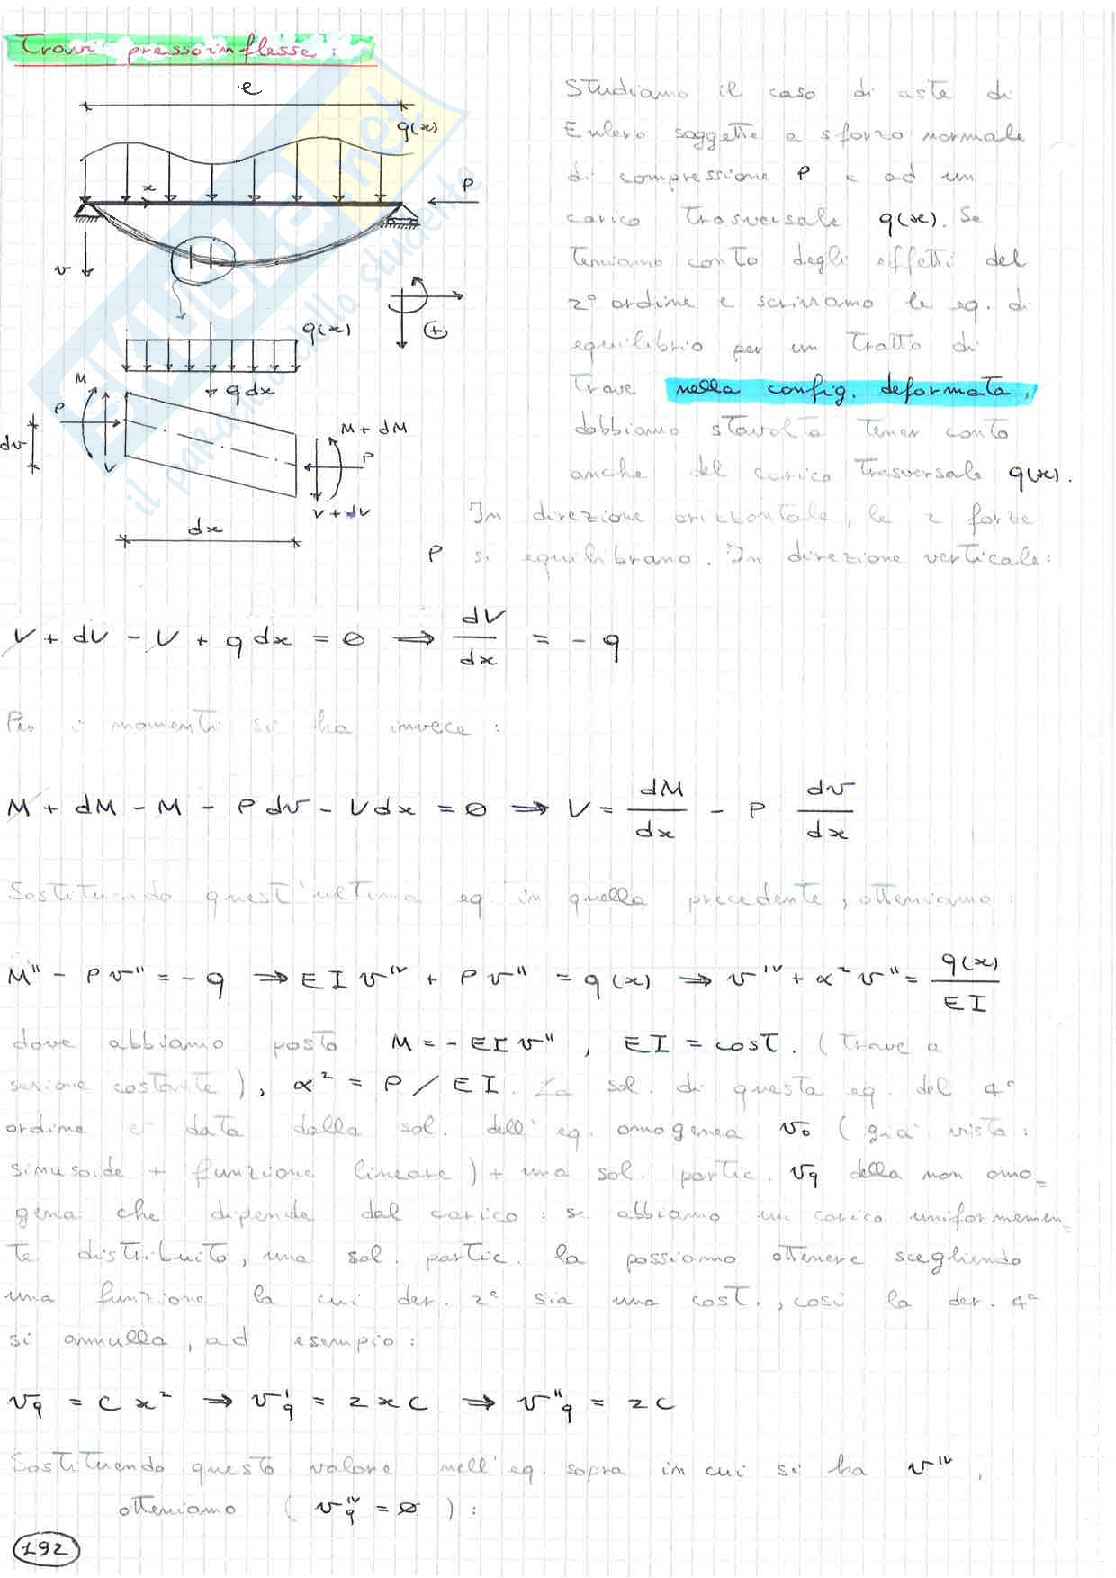 Travi pressoinflesse:
Studiamo il caso di aste di
Eulero soggette a sforzo normale
di compressione P e ad un
carico trasversale q(x). Se
teniamo conto degli effetti del
2° ordine e scriviamo le eq. di
equilibrio per un tratto di
trave nella config. deformata,
dobbiamo stavolta tener conto
anche del carico trasversale q(x).
In direzione orizzontale, le 2 forze
P si equilibrano. In direzione verticale:
e
q(x)
x
P
v
+
q(x)
q dx
M
P
dv
V
M + dM
P
V + dV
dx
V + dV - V + q dx = 0 ⇒ dV/dx = - q
Per i momenti si ha invece:
M + dM - M - P dv - V dx = 0 ⇒ V = dM/dx - P dv/dx
Sostituendo quest'ultima eq. in quella precedente, otteniamo:
M'' - P v'' = - q ⇒ E I v^IV + P v'' = q(x) ⇒ v^IV + α² v'' = q(x)/EI
dove abbiamo posto M = - EI v'', EI = cost. (trave a
sezione costante), α² = P / EI. La sol. di questa eq. del 4°
ordine è data dalla sol. dell'eq. omogenea v₀ (già vista:
sinusoide + funzione lineare) + una sol. partic. vq della non omo-
genea che dipende dal carico: se abbiamo un carico uniformemen-
te distribuito, una sol. partic. la possiamo ottenere scegliendo
una funzione la cui der. 2ª sia una cost., così la der. 4ª
si annulla, ad esempio:
vq = C x² ⇒ v'q = 2xC ⇒ v''q = 2C
Sostituendo questo valore nell'eq. sopra in cui si ha v^IV,
otteniamo (vq^IV = 0):
192
il paradiso dello studente